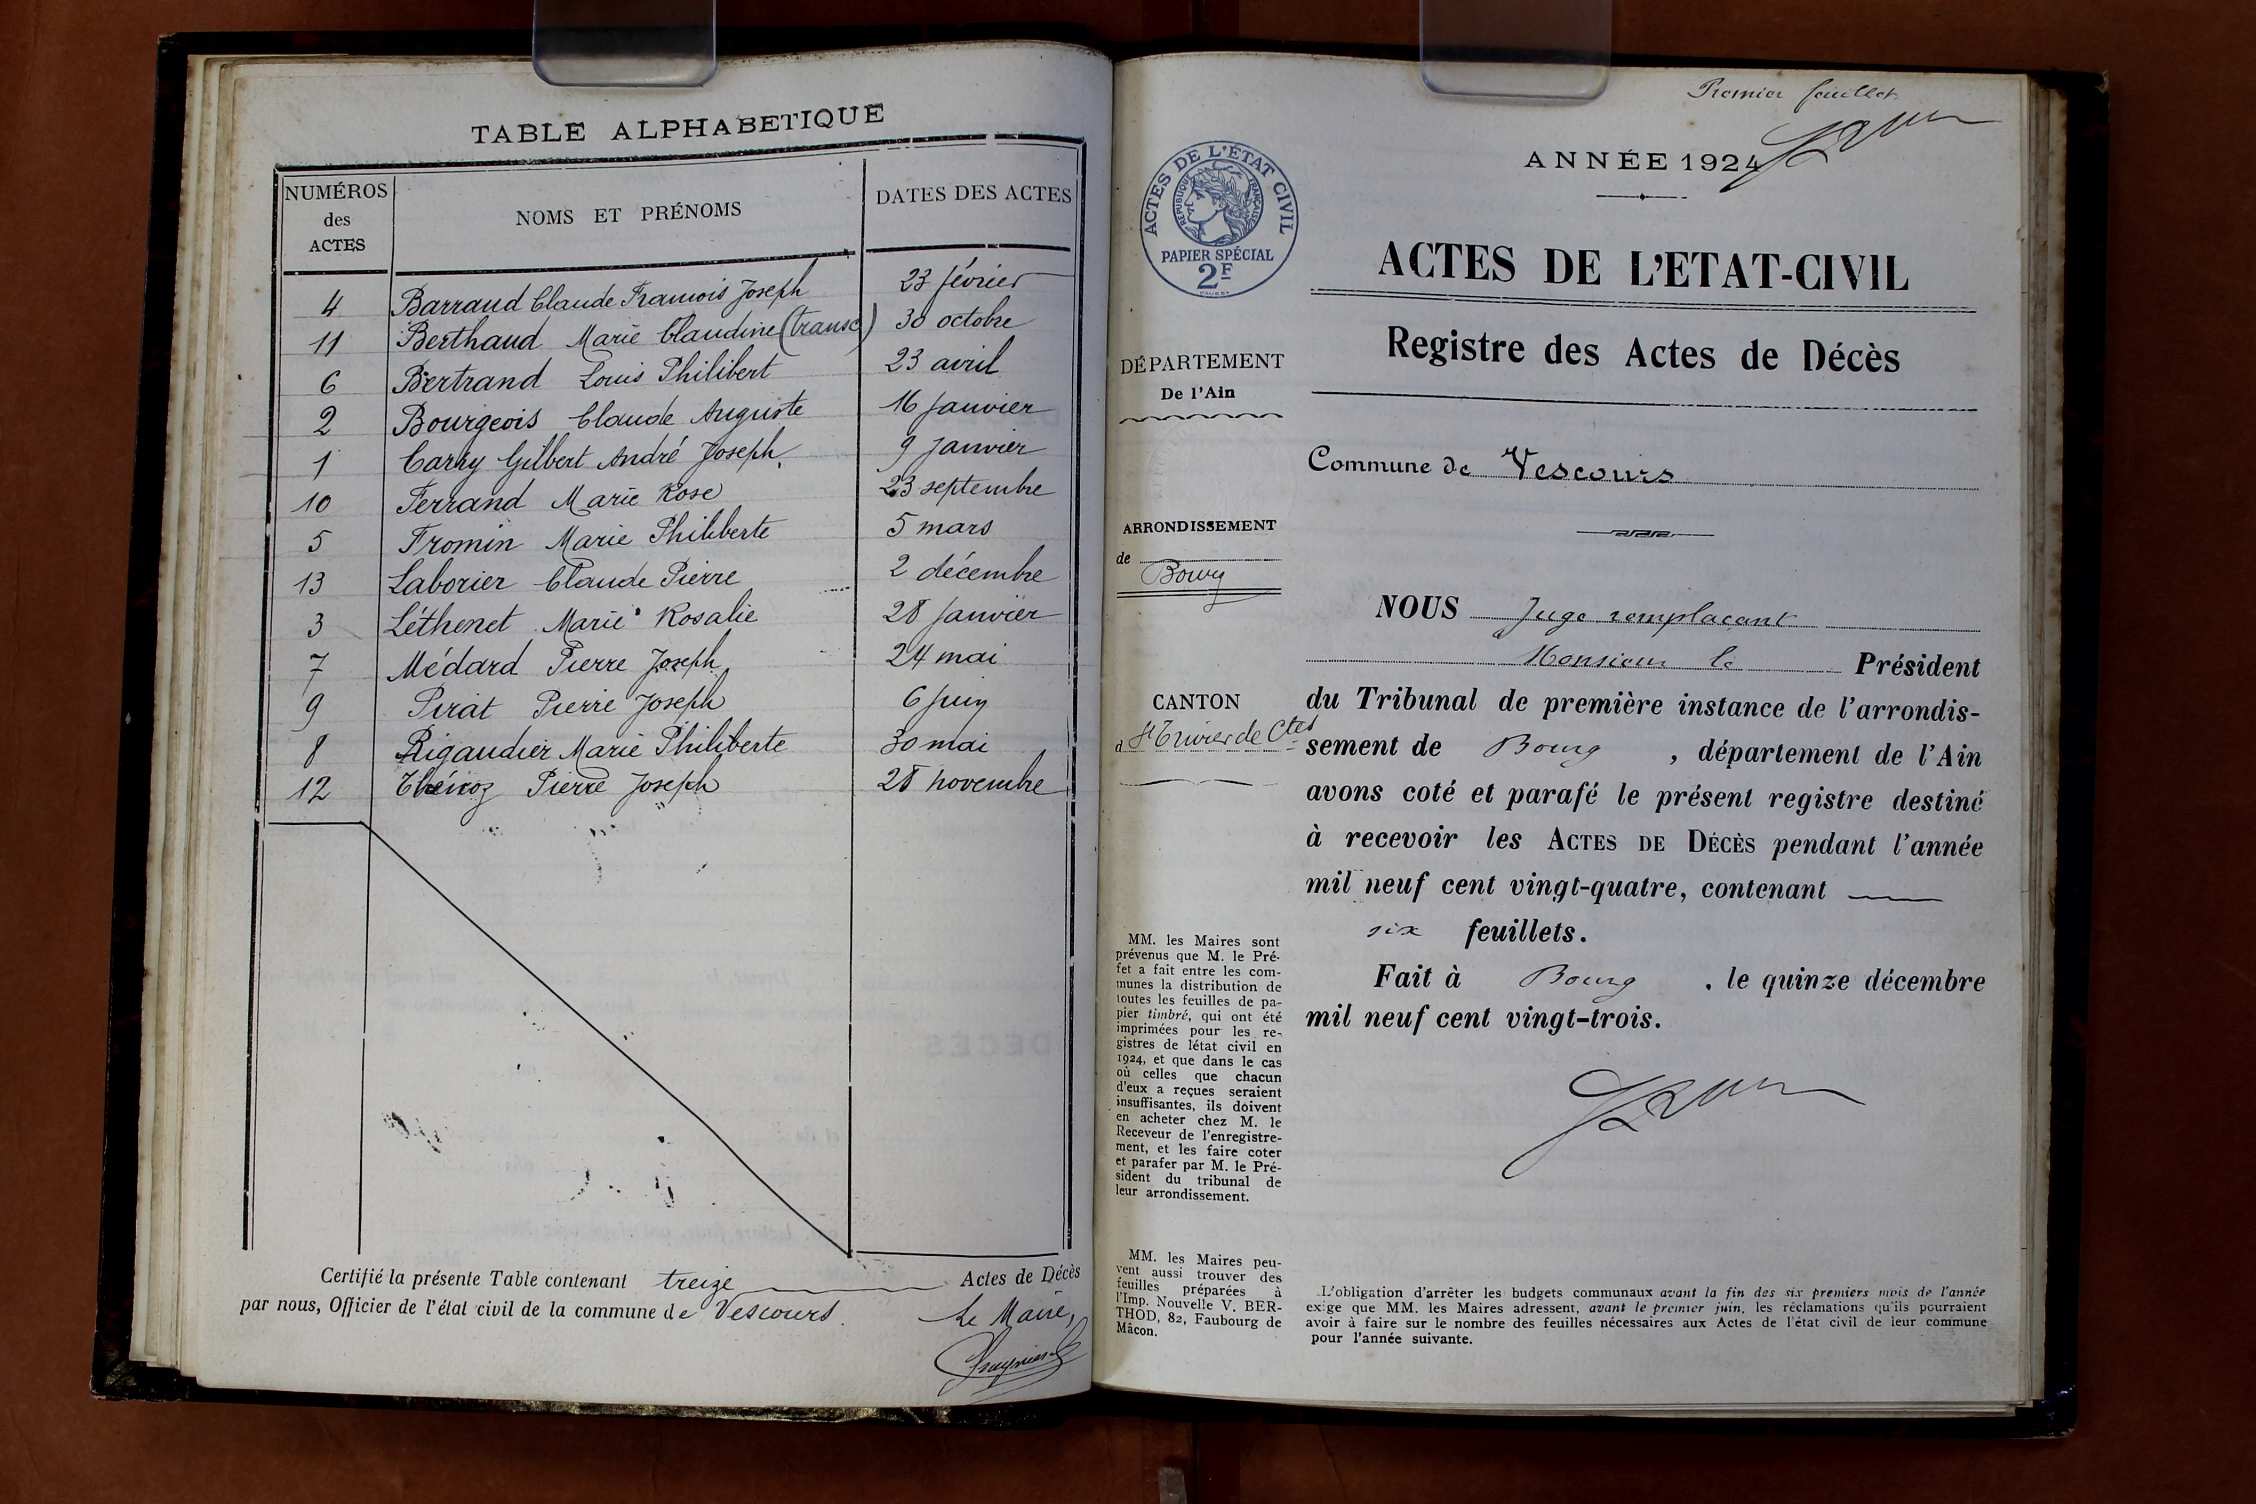 TABLE ALPHABETIQUE
NUMÉROS des ACTES | NOMS ET PRÉNOMS | DATES DES ACTES
4 Barraud Claude François Joseph 23 février
11 Berthaud Marie Claudine (transc) 30 octobre
6 Bertrand Louis Philibert 23 avril
2 Bourgeois Claude Auguste 16 janvier
1 Carry Gilbert André Joseph 9 janvier
10 Ferrand Marie Rose 23 septembre
5 Fromin Marie Philiberte 5 mars
13 Laborier Claude Pierre 2 décembre
3 Léthenet Marie Rosalie 28 janvier
7 Médard Pierre Joseph 24 mai
9 Pirat Pierre Joseph 6 juin
8 Rigaudier Marie Philiberte 30 mai
12 Pierre Joseph 28 novembre
Certifié la présente Table contenant treize Actes de Décès
par nous, Officier de l'état civil de la commune de Vescours.
Le Maire,
Premier feuillet
ANNÉE 1924
ACTES DE L'ÉTAT CIVIL
RÉPUBLIQUE FRANÇAISE
PAPIER SPÉCIAL
2F
ACTES DE L'ETAT-CIVIL
Registre des Actes de Décès
DÉPARTEMENT
De l'Ain
Commune de Vescours
ARRONDISSEMENT
de Bourg
CANTON
d St Trivier de Ctes
NOUS Juge remplaçant
Monsieur le Président
du Tribunal de première instance de l'arrondis-
sement de Bourg , département de l'Ain
avons coté et parafé le présent registre destiné
à recevoir les ACTES DE DÉCÈS pendant l'année
mil neuf cent vingt-quatre, contenant
six feuillets.
Fait à Bourg , le quinze décembre
mil neuf cent vingt-trois.
MM. les Maires sont
prévenus que M. le Pré-
fet a fait entre les com-
munes la distribution de
toutes les feuilles de pa-
pier timbré, qui ont été
imprimées pour les re-
gistres de létat civil en
1924, et que dans le cas
où celles que chacun
d'eux a reçues seraient
insuffisantes, ils doivent
en acheter chez M. le
Receveur de l'enregistre-
ment, et les faire coter
et parafer par M. le Pré-
sident du tribunal de
leur arrondissement.
MM. les Maires peu-
vent aussi trouver des
feuilles préparées à
l'Imp. Nouvelle V. BER-
THOD, 82, Faubourg de
Mâcon.
L'obligation d'arrêter les budgets communaux avant la fin des six premiers mois de l'année
exige que MM. les Maires adressent, avant le premier juin, les réclamations qu'ils pourraient
avoir à faire sur le nombre des feuilles nécessaires aux Actes de l'état civil de leur commune
pour l'année suivante.